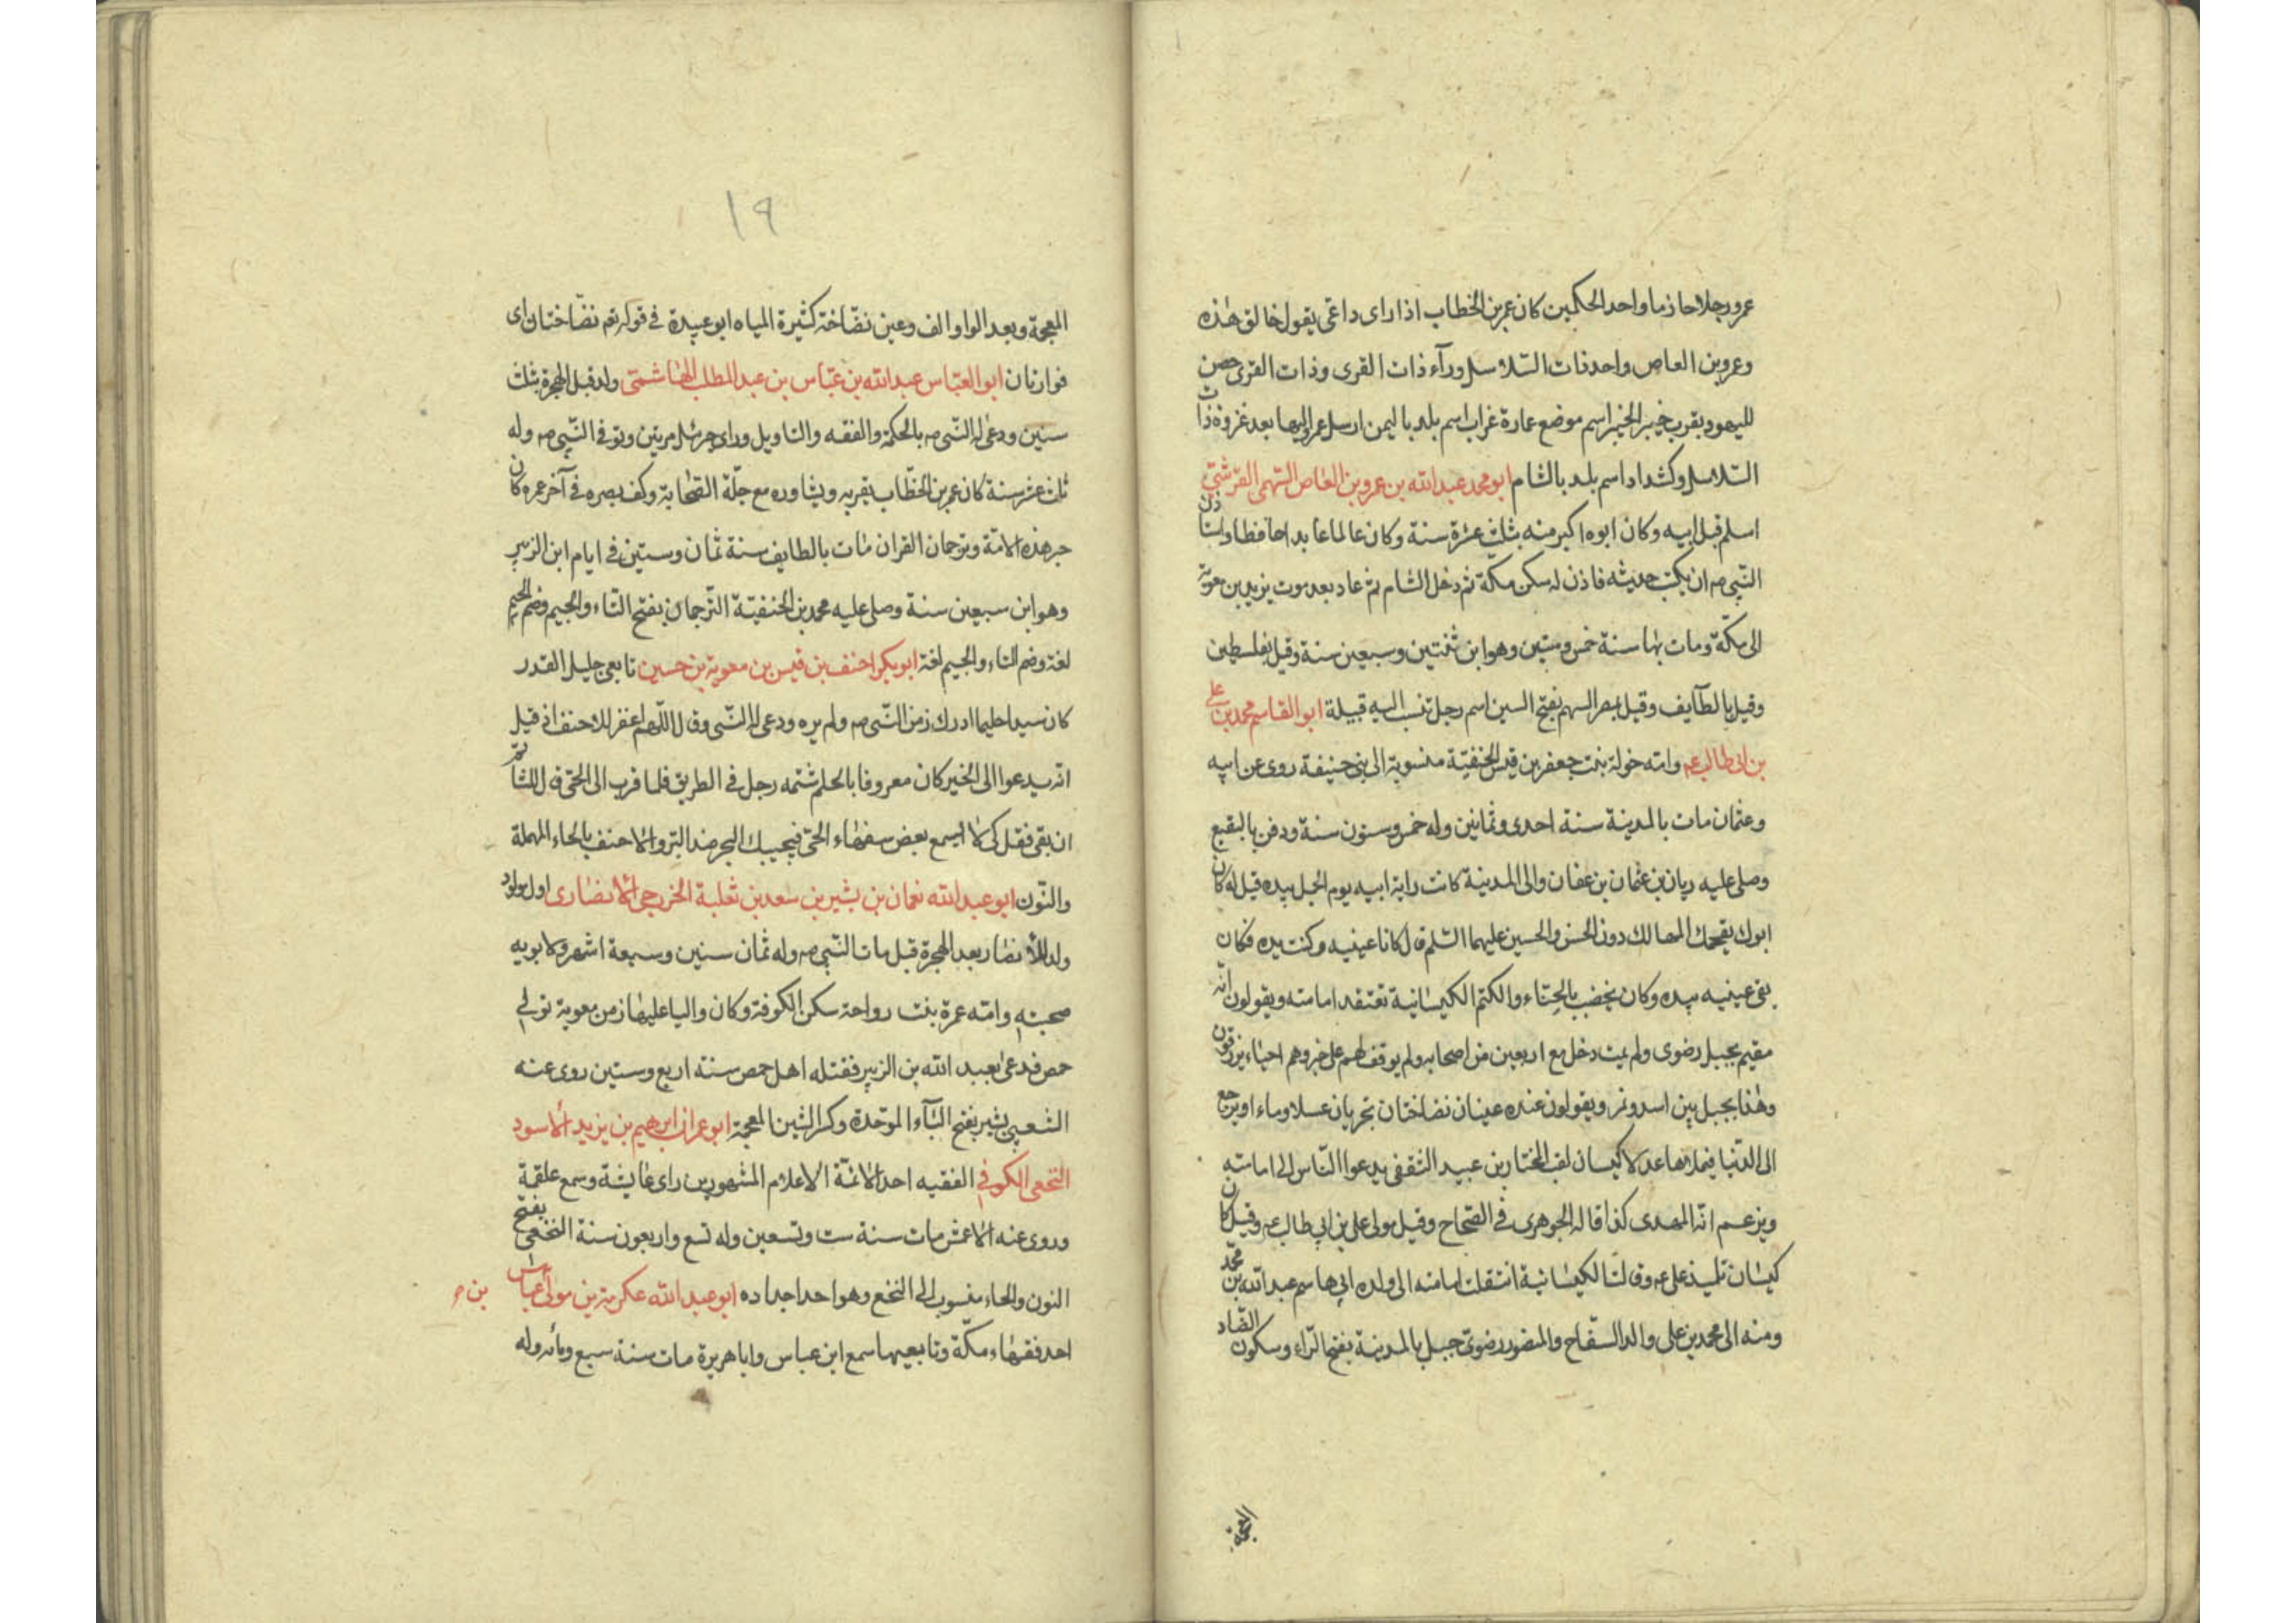 عمرو رجلا حازما واحد الحكمين كان عمر بن الخطاب اذا راى داعى يقول خالق هذه
وعمرو بن العاص واحد ذات السّلاسل ورآء ذات القرى وذات القرى حصن
لليهود بقرب خيبر الخيبر اسم موضع عمارة غراب اسم بلد باليمن ارسل عمرو اليها بعد غزوة ذات
السّلاسل وكشداد اسم بلد بالشام ابو محمد عبد الله بن عمرو بن العاص السّهمى القرشىّ
اسلم قبل ابيه وكان ابوه اكبر منه بثلث عشرة سنة وكان عالما عابدا حافظا واستاذن
النّبى صم ان يكتب حديثه فاذن له سكن مكّة ثم دخل الشام ثم عاد بعد موت يزيد بن معوية
الى مكّة ومات بها سنة خمس وستين وهو ابن ثنتين وسبعين سنة وقيل بفلسطين
وقيل بالطآيف وقيل بمصر السهم بفتح السين اسم رجل تنسب اليه قبيلة ابو القاسم محمد بن على
بن ابى طالب عم وامّه خولة بنت جعفر بن قيس الحنفيّة منسوبة الى بنى حنيفة روى عن ابيه
وعثمان مات بالمدينة سنة احدى وثمانين وله خمس وستون سنة ودفن بالبقيع
وصلى عليه ريان بن عثمان بن عفان والى المدينة كانت راية ابيه يوم الجمل بيده قيل له كان
ابوك يقحمك المهالك دون الحسن والحسين عليهما السّلم قال كانا عينيه وكنت يده فكان
يقى عينيه بيده وكان يخضب بالحنّاء والكتم الكيسانية تعتقد امامته ويقولون انّه
مقيم بجبل رضوى ولم يمت دخل مع اربعين من اصحابه ولم يوقف لهم على خبر وهم احياء يرزقون
وهذا بجبل بين اسد ونمر ويقولون عنده عينان نضاختان تجريان عسلا وماء او يرجع
الى الدّنيا فيملاها عدلا كيسان لقب المختار بن عبيد الثقفى يدعوا النّاس الى امامته
ويزعم انّه المهدى كذا قاله الجوهرى فى الصّحاح وقيل مولى على بن ابى طالب عم وقيل كان
كيسان تلميذ على عم وقالت الكيسانية انتقلت امامته الى ولده ابى هاسم عبد الله بن محمّد
ومنه الى محمد بن على والد السّفاح والمنصور رضوىّ جبل بالمدينة بفتح الرّاء وسكون الضّاد
المعجمة
١٩
المعجمة وبعد الواو الف وعين نضّاخة كثيرة المياه ابو عبيدة فى قوله تعم نضّاختان اى
فوارتان ابو العبّاس عبد الله بن عبّاس بن عبد المطلب الهاشمىّ ولد قبل الهجرة بثلث
سنين ودعى له النّبى صم بالحكمة والفقه والتاويل وراى جرئيل مرتين وتوفى النّبى صم وله
ثلث عشر سنة كان عمر بن الخطّاب يقربه ويشاوره مع جلّة الصّحابة وكف بصره فى آخر عمره كان
حبر هذه الامّة وترجمان القران مات بالطايف سنة ثمان وستين فى ايام ابن الزبير
وهو ابن سبعين سنة وصلى عليه محمد بن الحنفيّة التّرجمان بفتح التّاء والجيم وضم الجيم
لغة وضم التاء والجيم لغة ابو بكر احنف بن قيس بن معوية بن حسين تابعى جليل القدر
كان سيدا حليما ادرك زمن النّبى صم ولم يره ودعى له النّبى وقال اللّهم اغفر للاحنف اذ قيل
انّه يدعوا الى الخير كان معروفا بالحلم شتمه رجل فى الطريق فلما قرب الى الحىّ قال للشّاتم
ان بقى فقل كى لا ايسمع بعض سفهاء الحىّ فيجيبك البحر ضد البرّ والاحنف بالحاء المهملة
والنّون ابو عبد الله نعمان بن بشير بن سعد بن ثعلبة الخزرجى الانصارى اول مولود
ولد للأنصار بعد الهجرة قبل مات النّبى صم وله ثمان سنين وسبعة اشهر ولابويه
صحبته وامّه عمرة بنت رواحة سكن الكوفة وكان واليا عليها زمن معوية تولى
حمص فدعى بعبد الله بن الزبير فقتله اهل حمص سنة اربع وستين روى عنه
الشعبى بشير بفتح البآء الموحّدة وكسر الشين المعجمة ابو عمران ابرهيم بن يزيد الاسود
النخعى الكوفى الفقيه احد الائمّة الاعلام المشهورين راى عايشة وسمع علقمة
وروى عنه الاعمش مات سنة ست وتسعين وله تسع واربعون سنة النخعى بفتح
النون والخاء منسوب الى النخع وهو احد اجداده ابو عبد الله عكرمة بن مولى عباس بن صم
احد فقهاء مكّة وتابعيها سمع ابن عباس وابا هريرة مات سنة سبع ومائه وله